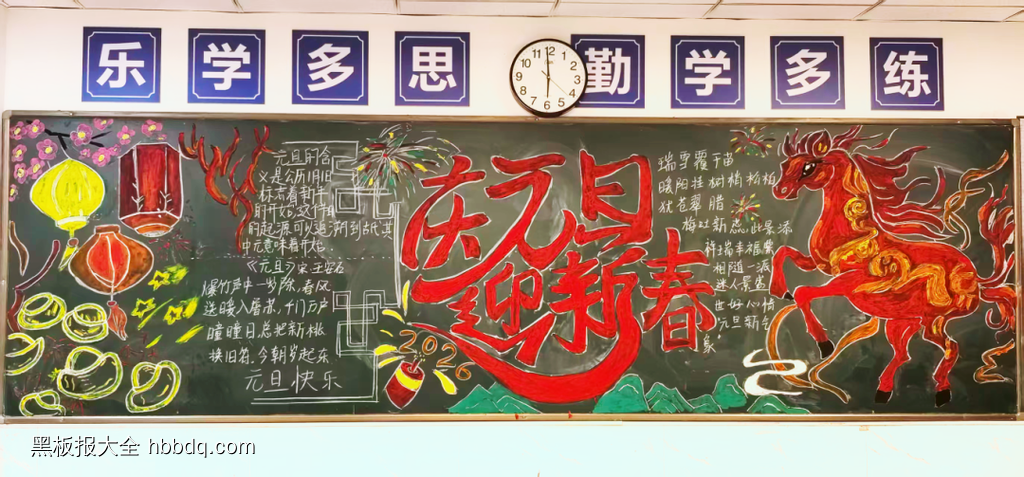 乐学多思
勤学多练
元旦的含
义是公历1月1日
标志着新年
的开始。这个
的起源可以追溯到
中元意味着开始。
《元旦》宋 王安石
爆竹声中一岁除，春风
送暖入屠苏，千门万户
曈曈日，总把新桃
换旧符。今朝岁起乐
元旦快乐
庆元旦
迎新春
2026
瑞雪覆千亩
暖阳挂树梢 松柏
犹苍翠 腊
梅吐新蕊，此景添
祥瑞幸福常
相随一派
迷人景
也好心情
元旦新气
象
黑板报大全 hbbdq.com